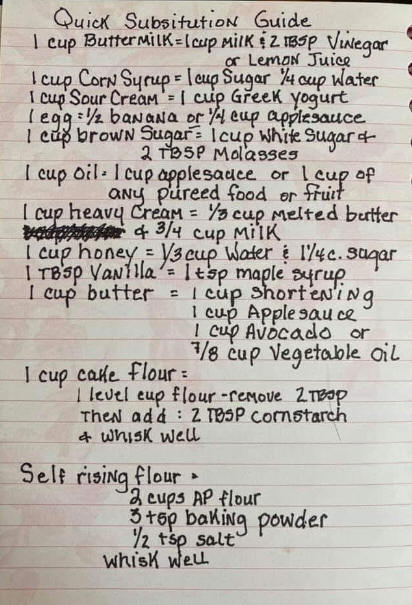 Quick Subsitution Guide
1 cup Buttermilk = 1 cup milk & 2 TBSP Vinegar
or Lemon Juice
1 cup Corn Syrup = 1 cup Sugar 1/4 cup Water
1 cup Sour Cream = 1 cup Greek yogurt
1 egg = 1/2 banana or 1/4 cup applesauce
1 cup brown Sugar = 1 cup White Sugar &
2 TBSP Molasses
1 cup Oil = 1 cup applesauce or 1 cup of
any pureed food or fruit
1 cup heavy Cream = 1/3 cup melted butter
& 3/4 cup Milk
1 cup honey = 1/3 cup Water & 1 1/4 c. sugar
1 TBSP Vanilla = 1 tsp maple syrup
1 cup butter = 1 cup shortening
1 cup Applesauce
1 cup Avocado or
7/8 cup Vegetable Oil
1 cup cake flour =
1 level cup flour - remove 2 TBSP
Then add : 2 TBSP cornstarch
& whisk well
Self rising flour =
2 cups AP flour
3 tsp baking powder
1/2 tsp salt
whisk well